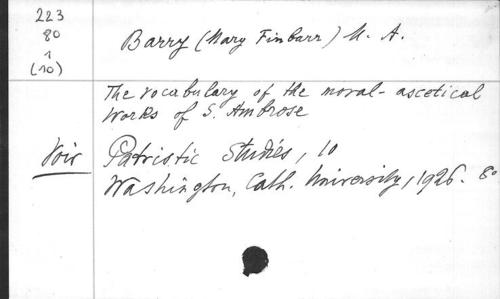 223
80
1
(10)
Barry (Mary Finbarr) M. A.
The vocabulary of the moral-ascetical
works of S. Ambrose
Voir Patristic Studies, 10
Washington, Cath. University, 1926. 8°